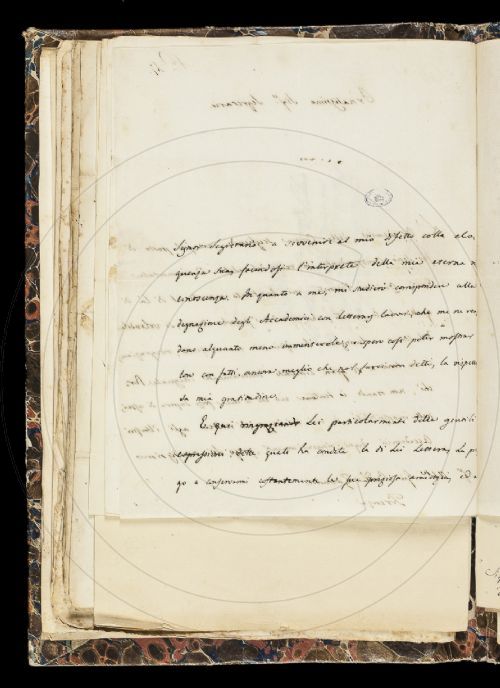 Signor Segretario a sovvenire al mio difetto colla elo,
quenza Sua, facendosi l'interprete della mia eterna ri
conoscenza. In quanto a me, mi studierò corrispondere alla
degnazione degli Accademici con letterarj lavori, che me ne ren
dano alquanto meno immeritevole, e spero così poter mostrar
loro con fatti, ancora meglio che nol farei con detti, la rispetto
sa mia gratitudine.
E qui ringraziando Lei particolarmente delle gentili
espressioni delle quali ha condita la di Lei Lettera, La pr
go a conservarmi costantemente la sua pregiosa amicizia, ed